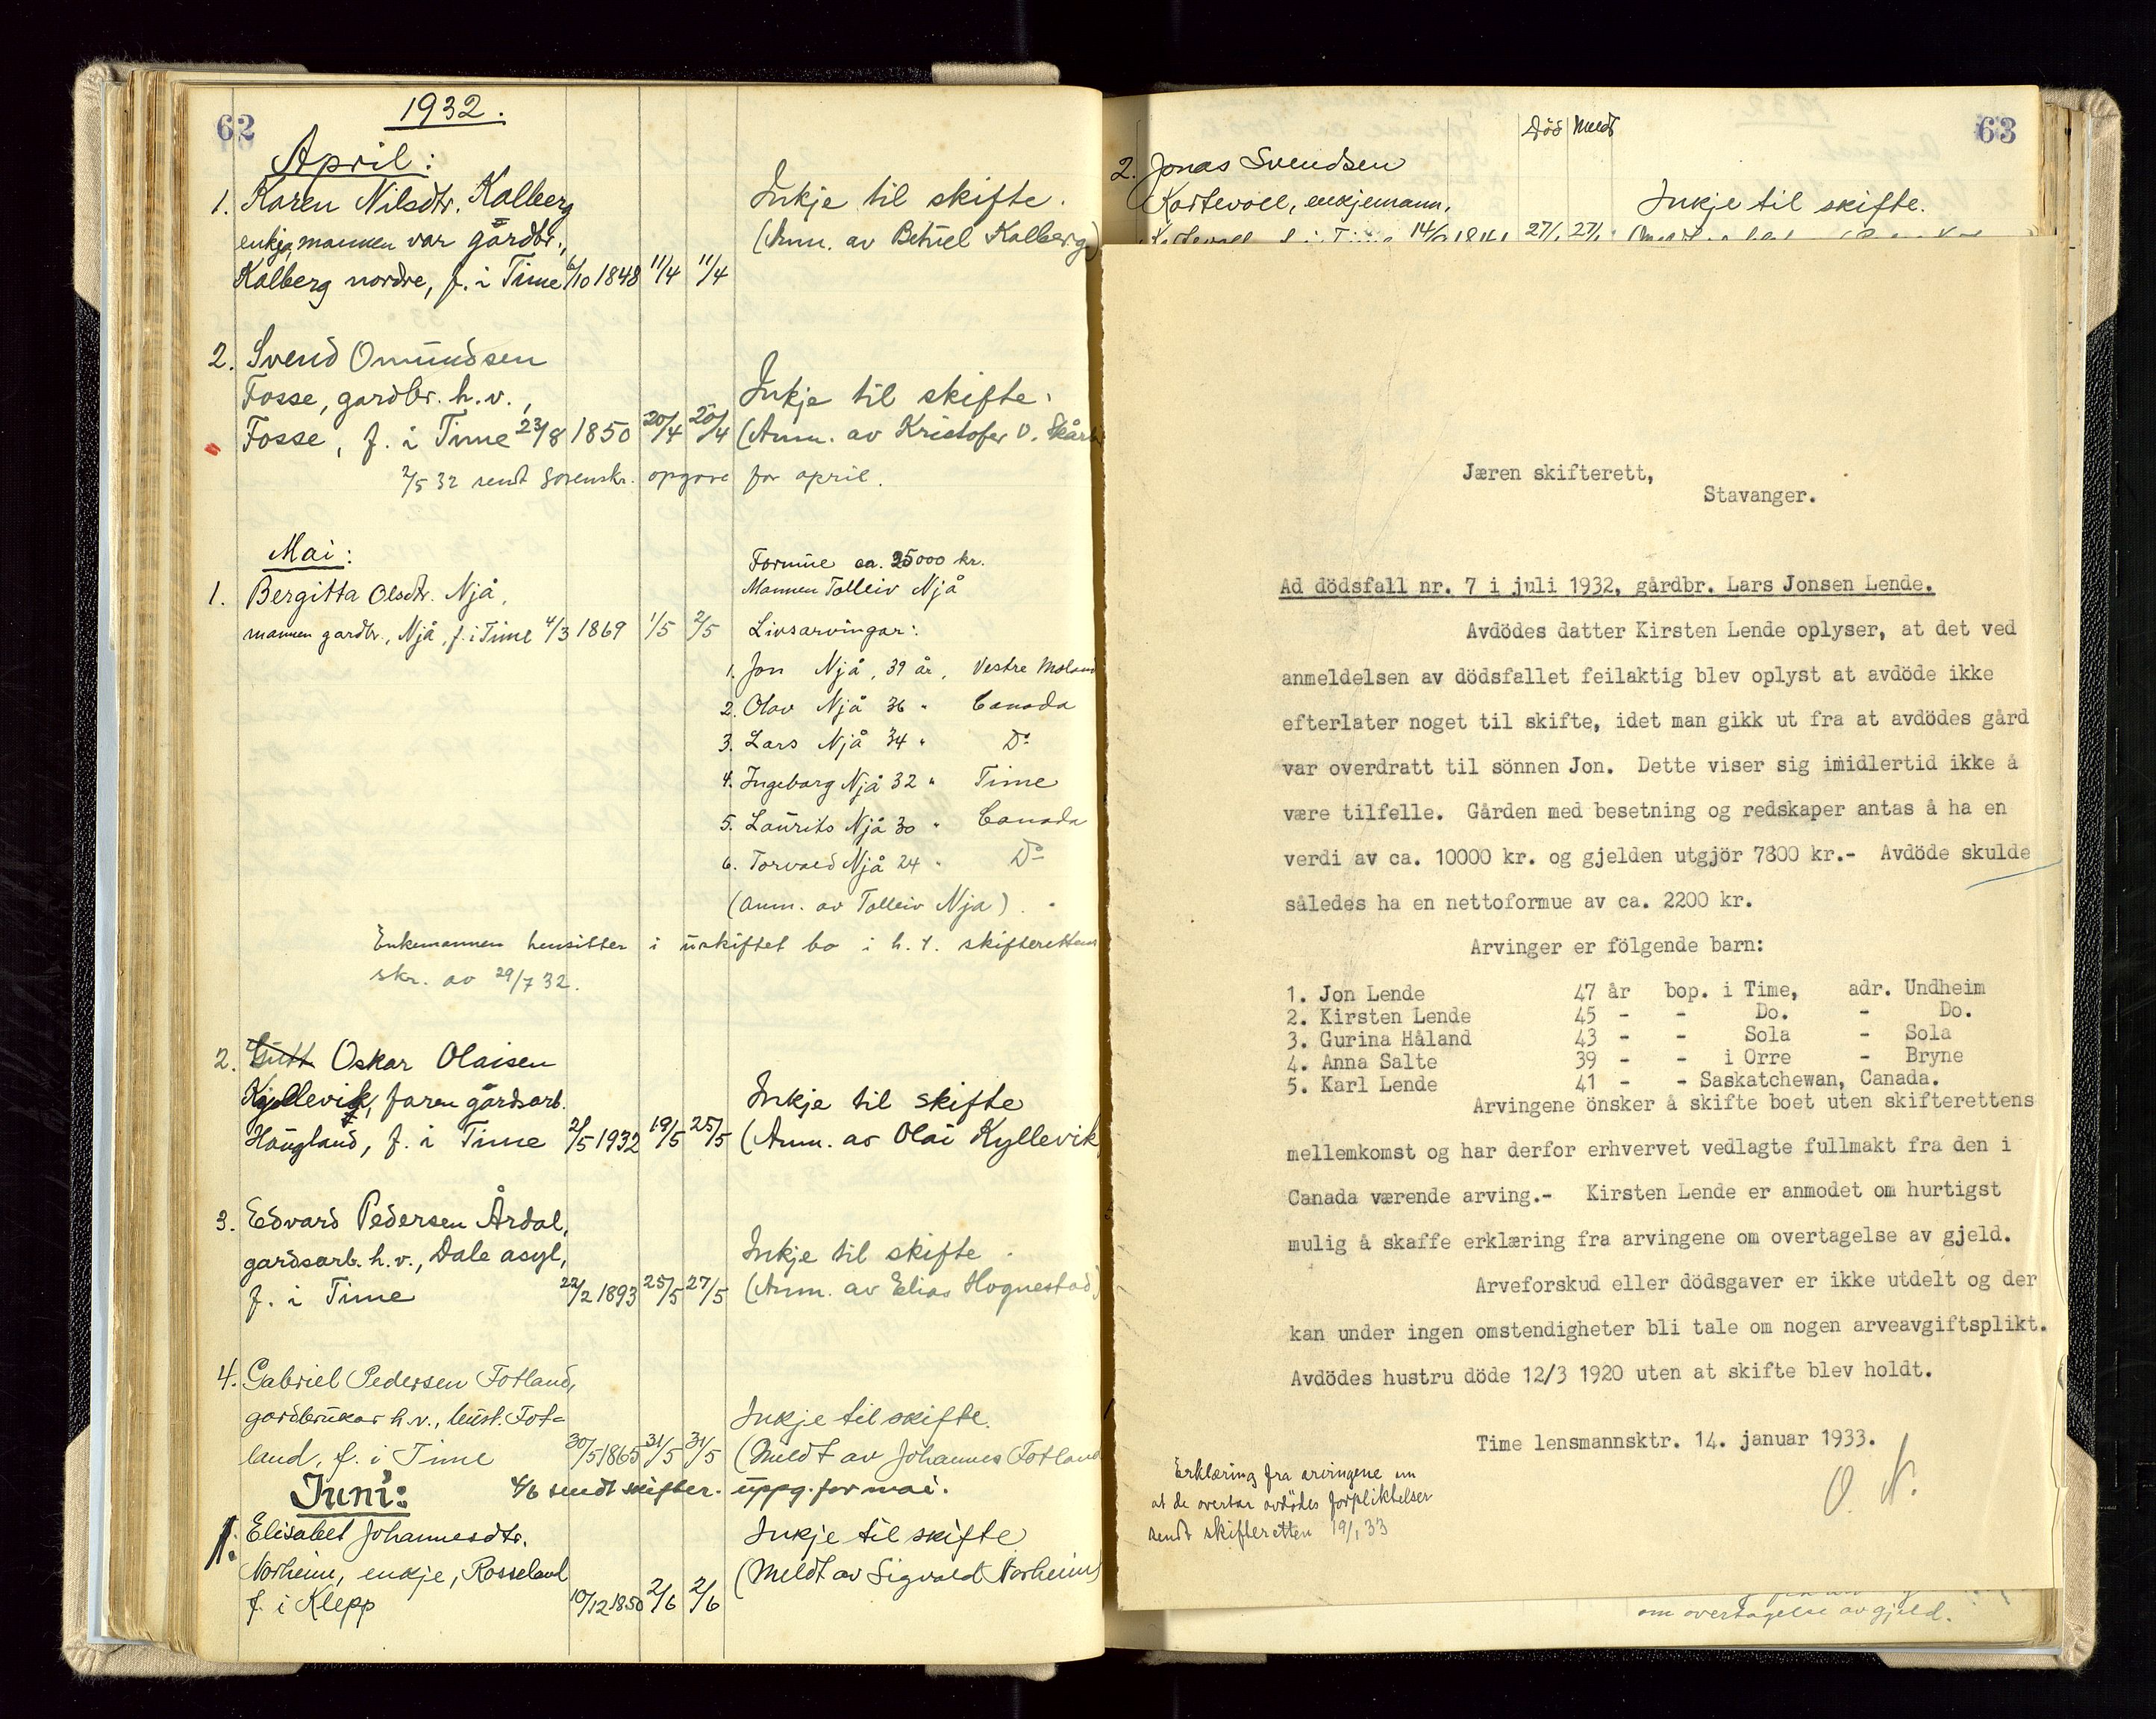 62
1932.
April:
1. Karen Nilsdtr. Kalberg
enkja, mannen var gårdbr.,
Kalberg nordre, f. i Time 6/10 1848 11/4 11/4
Inkje til skifte.
(Anm. av Betuel Kalberg)
2. Svend Omundsen
Fosse, gardbr. h.v.,
Fosse, f. i Time 23/8 1850 20/4 20/4
Inkje til skifte.
(Anm. av Kristofer O.
2/5 32 sendt sorenskr. opgave for april.
Mai:
1. Bergitta Olsdtr. Njå,
mannen gardbr., Njå, f. i Time 4/3 1869 1/5 2/5
Formue ca. 25000 kr.
Mannen Tolleiv Njå
Livsarvingar:
1. Jon Njå, 39 år, Vestre Moland
2. Olav Njå 36 " Canada
3. Lars Njå 34 " Do
4. Ingeborg Njå 32 " Time
5. Laurits Njå 30 " Canada
6. Torvald Njå 24 " Do
(Anm. av Tolleiv Njå).
Enkemannen hensitter i uskiftet bo i h. t. skifterettens
skr. av 29/7 32.
2. Gutt Oskar Olaisen
Kyllevik, faren gårdsarb.
Haugland, f. i Time 2/5 1932 19/5 25/5
Inkje til skifte
(Anm. av Olai Kyllevik)
3. Edvard Pedersen Årdal,
gardsarb. h.v., Dale asyl,
f. i Time 22/2 1893 25/5 27/5
Inkje til skifte.
(Anm. av Elias Hognestad)
4. Gabriel Pedersen Fotland,
gardbrukar h.v., bust. Fot=
land, f. i Time 30/5 1865 31/5 31/5
Inkje til skifte.
(Meldt av Johannes Fotland
4/6 sendt skifter. uppg. for mai.
Juni:
1. Elisabet Johannesdtr.
Norheim, enkje, Rosseland
f. i Klepp 10/12 1850 2/6 2/6
Inkje til skifte
(Meldt av Sigvald Norheim)
63
Død Meldt
2. Jonas Svendsen
Kartevoll, enkjemann,
Inkje til skifte.
Kartevoll f. i Time 14/ 1841 27/ 27/
Jæren skifterett,
Stavanger.
Ad dödsfall nr. 7 i juli 1932, gårdbr. Lars Jonsen Lende.
Avdödes datter Kirsten Lende oplyser, at det ved
anmeldelsen av dödsfallet feilaktig blev oplyst at avdöde ikke
efterlater noget til skifte, idet man gikk ut fra at avdödes gård
var overdratt til sönnen Jon. Dette viser sig imidlertid ikke å
være tilfelle. Gården med besetning og redskaper antas å ha en
verdi av ca. 10000 kr. og gjelden utgjör 7800 kr.- Avdöde skulde
således ha en nettoformue av ca. 2200 kr.
Arvinger er fölgende barn:
1. Jon Lende 47 år bop. i Time, adr. Undheim
2. Kirsten Lende 45 - - Do. - Do.
3. Gurina Håland 43 - - Sola - Sola
4. Anna Salte 39 - - i Orre - Bryne
5. Karl Lende 41 - - Saskatchewan, Canada.
Arvingene önsker å skifte boet uten skifterettens
mellemkomst og har derfor erhvervet vedlagte fullmakt fra den i
Canada værende arving.- Kirsten Lende er anmodet om hurtigst
mulig å skaffe erklæring fra arvingene om overtagelse av gjeld.
Arveforskud eller dödsgaver er ikke utdelt og der
kan under ingen omstendigheter bli tale om nogen arveavgiftsplikt.
Avdödes hustru döde 12/3 1920 uten at skifte blev holdt.
Time lensmannsktr. 14. januar 1933.
O. N.
Erklæring fra arvingene om
at de overtar avdödes forpliktelser
sendt skifteretten 19/1 33
om overtagelse av gjeld.